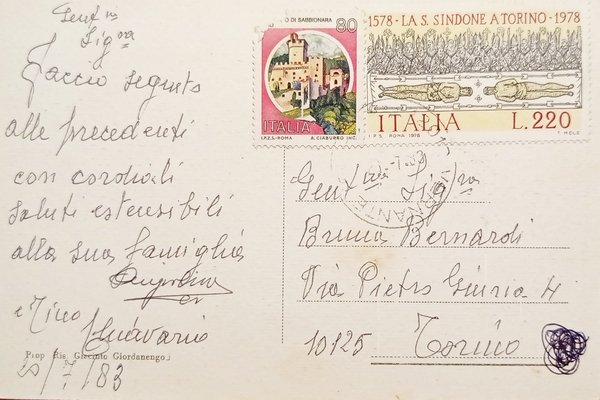 Gent.ma
Sig.ra
Faccio seguito
alle precedenti
con cordiali
saluti estensibili
alla sua famiglia
e Tino
Prop. Ris. Giacinto Giordanengo
20/7/83
O DI SABBIONARA
80
ITALIA
I.P.Z.S.-ROMA A. CIABURRO INC.
1578 - LA S. SINDONE A TORINO - 1978
ITALIA L.220
I.P.S. ROMA 1978 T. MELE
Gent.ma Sig.ra
Bruna Bernardi
Via Pietro Giuria 4
10125 Torino